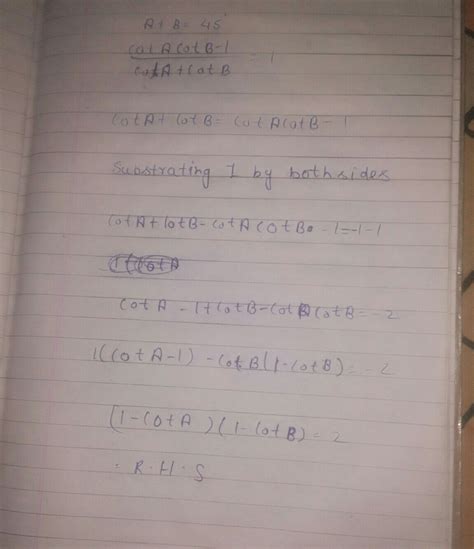 A + B = 45°
cot A cot B - 1 / cot A + cot B = 1
cot A + cot B = cot A cot B - 1
Substrating 1 by both sides
cot A + cot B - cot A cot B - 1 = -1 - 1
cot A - 1 + cot B - cot A cot B = -2
1(cot A - 1) - cot B (1 - cot B) = -2
(1 - cot A) (1 - cot B) = 2
= R.H.S